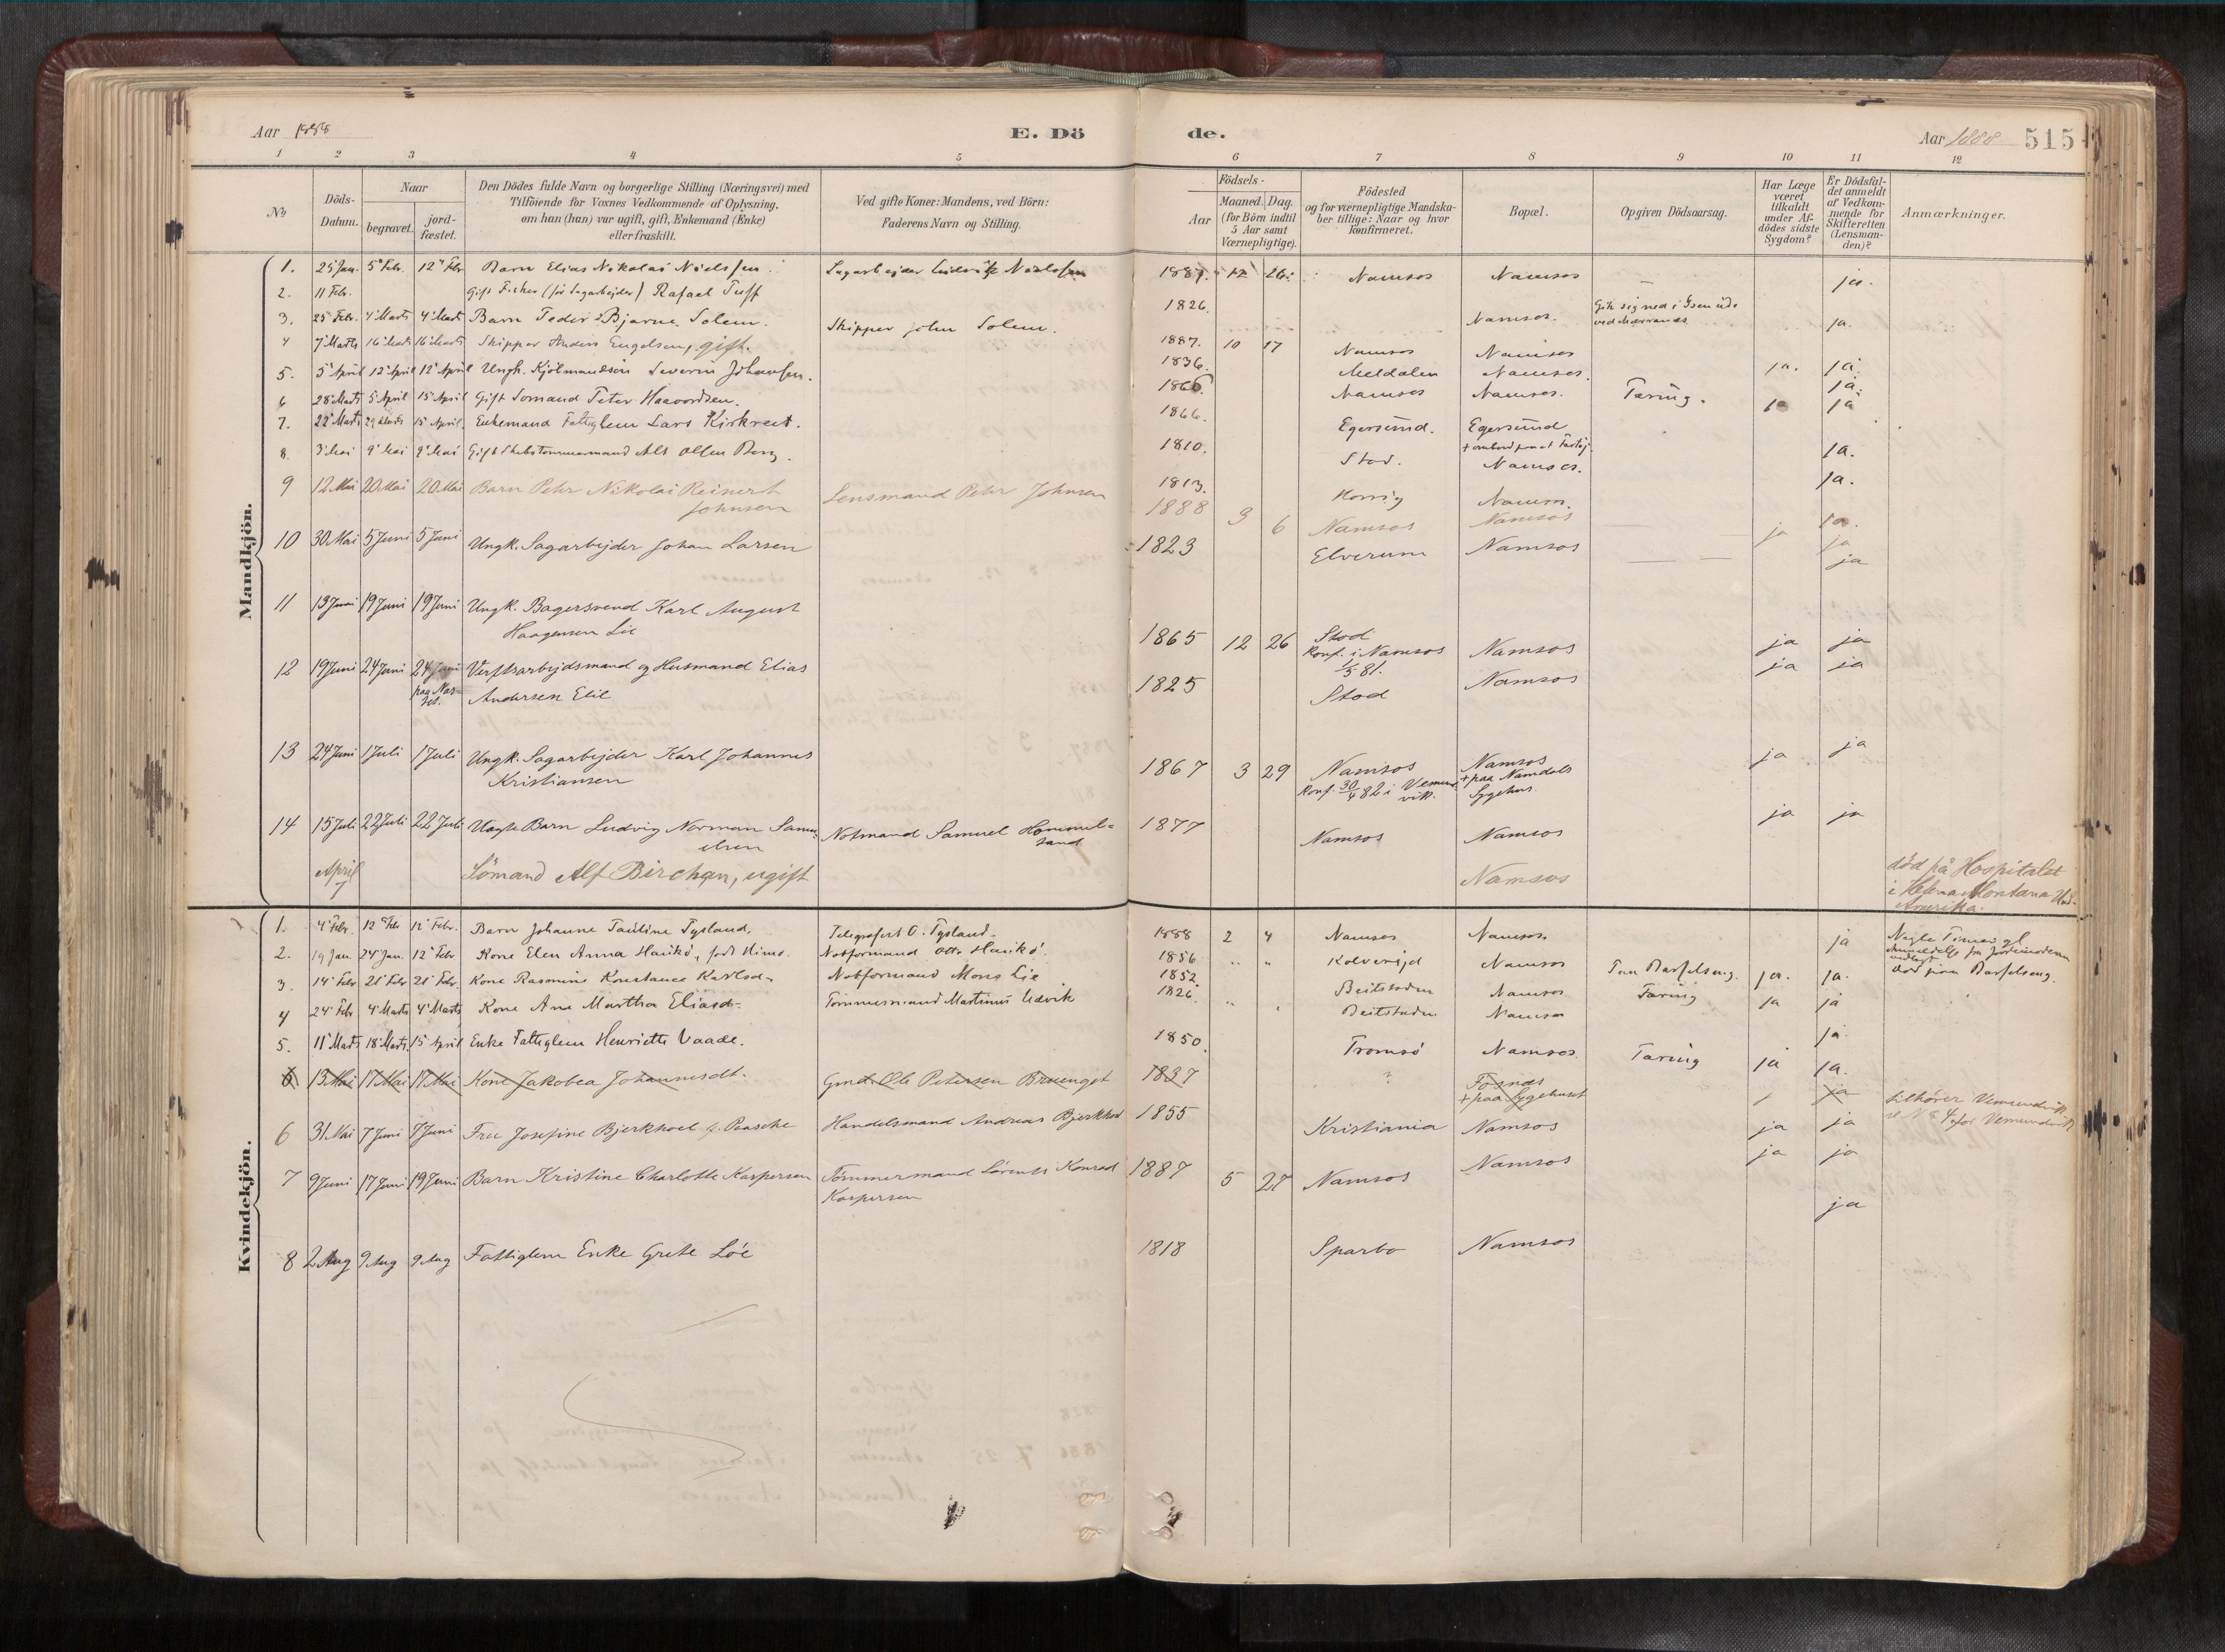 Aar 1888
E. Dö
de.
Aar 1888 515
1 2 3 4 5 6 7 8 9 10 11 12
No
Döds-
Datum.
Naar
begravet.
jord-
fæstet.
Den Dödes fulde Navn og borgerlige Stilling (Næringsvei) med
Tilföiende for Voxnes Vedkommende af Oplysning,
om han (hun) var ugift, gift, Enkemand (Enke)
eller fraskilt.
Ved gifte Koner: Mandens, ved Börn:
Faderens Navn og Stilling.
Aar
Födsels-
Maaned. Dag.
(for Börn indtil
5 Aar samt
Værnepligtige).
Födested
og for værnepligtige Mandska-
ber tillige: Naar og hvor
Konfirmeret.
Bopæl.
Opgiven Dödsaarsag.
Har Læge
været
tilkaldt
under Af-
dödes sidste
Sygdom?
Er Dödsfal-
det anmeldt
af Vedkom-
mende for
Skifteretten
(Lensman-
den)?
Anmærkninger.
Mandkjön.
1. 25 Jan. 5 Febr. 12 Febr Barn Elias Nikolai Nielssen. Sagarbejder Ludvik Nielssen 1887. 12 26. Namsos Namsos ja.
2. 11 Febr. Gift Fisker (för Sagarbejder) Rafael Tuff 1826. Namsos. Gik sig ned i Isen ude
3. 25 Febr. 4 Marts 4 Marts Barn Peder Bjarne Solem. Skipper John Solem. 1887. 10 17 Namsos Namsos ja.
4 7 Marts 16 Marts 16 Marts Skipper Anders Engelsen, gift. 1836. Meldalen Namsos. ja. ja.
5. 5 April 12 April 12 April Ungk. Severin Johansen. 1866. Namsos Namsos. Tæring. ja
6 28 Marts 5 April 15 April Gift Sømand Peter Haavordsen. 1866. Egersund. Egersund
7. 22 Marts 29 Marts 15 April. Enkemand Fattiglem Lars Kirkreit. 1810. Stod. Namsos. ja.
8. 3 Mai 9 Mai 9 Mai Gift Skibstømmermand Olsen Berg. 1813. Namsos. ja.
9 12 Mai 20 Mai 20 Mai Barn Petr Nikolai Reinert
Johnsen Lensmand Petr Johnsen 1888 3 6 Namsos Namsos ja ja
10 30 Mai 5 Juni 5 Juni Ungk. Sagarbejder Johan Larsen 1823 Elverum Namsos ja
11 13 Juni 19 Juni 19 Juni Ungk. Bagersvend Karl August
Haagensen Lie 1865 12 26 Stod
Konf. i Namsos Namsos ja ja
1/5 81.
12 19 Juni 24 Juni 24 Juni Verftsarbejdsmand og Husmand Elias
Andersen Elie 1825 Stod Namsos ja ja
13 24 Juni 1 Juli 1 Juli Ungk. Sagarbejder Karl Johannes
Kristiansen 1867 3 29 Namsos Namsos ja ja
Konf. 30/4 82 i Vemund- + paa Namdals
vik. Sygehus.
14 15 Juli 22 Juli 22 Juli Uægte Barn Ludvig Norman Samu-
elsen Notmand Samuel Hommel-
sand 1877 Namsos Namsos ja ja
April Sömand Alf Birchan, ugift Namsos död på Hospitalet
i Helena Montana
Amerika.
Kvindekjön.
1. 4 Febr. 12 Febr 12 Febr. Barn Johanne Pauline Tysland, Telegrafist O. Tysland. 1888 2 4 Namsos Namsos. ja
2. 19 Jan. 24 Jan. 12 Febr. Kone Elen Anna Harikö, født Himo. Notformand Otto Harikö. 1856. Kolvereid Namsos ja. ja. död Barselseng.
3. 14 Febr 21 Febr 21 Febr. Kone Rasmine Konstance Karlsd. Notformand Mons Lie 1852. Beitstaden Namsos Tæring ja ja
4 24 Febr 4 Marts 4 Marts Kone Ane Martha Eliasd. Tømmermand Martinus Udvik 1826. Beitstaden Namsos ja.
5. 11 Marts 18 Marts. 15 April Enke Fattiglem Henriette Vaade. 1850. Tromsö Namsos. Tæring ja ja.
6 13 Mai 17 Mai 17 Mai Kone Jakobea Johannesdt. Gmd. Ole Petersen Bruenget 1837 ? Fosnæs
+ paa Sygehuset ja tilhörer Vemundvik
6 31 Mai 7 Juni 7 Juni Frue Josefine Bjerkhoel f. Paasche Handelsmand Andreas Bjerkhoel 1855 Kristiania Namsos ja ja
7 9 Juni 17 Juni 19 Juni Barn Kristine Charlotte Kaspersen Tømmermand Lorents Konrad
Kaspersen 1887 5 27 Namsos Namsos ja ja
8 2 Aug 9 Aug 9 Aug Fattiglem Enke Grete Löe 1818 Sparbo Namsos ja